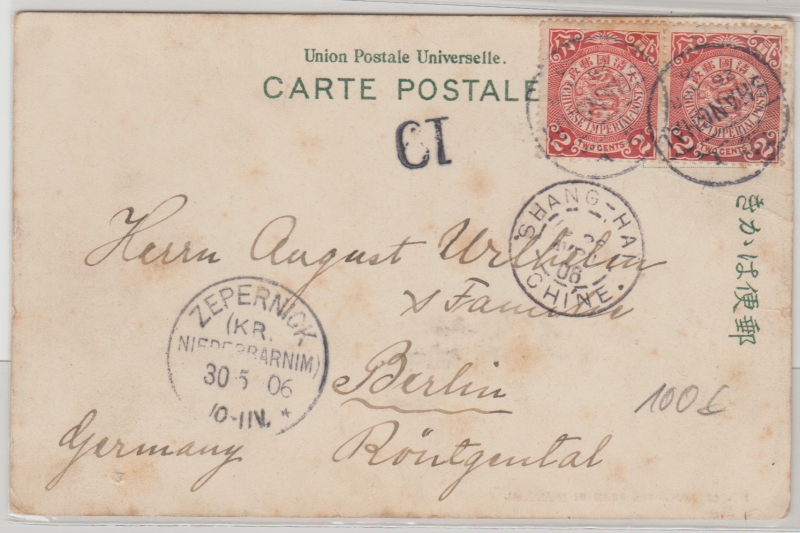 Union Postale Universelle.
CARTE POSTALE
大清國郵政
CHINESE IMPERIAL POST
2 TWO CENTS 2
大清國郵政
CHINESE IMPERIAL POST
2 TWO CENTS 2
SHANGHAI
CI
SHANG-HAI
06
CHINE.
きかは便郵
Herrn August Wilhelm
& Familie
Berlin
Röntgental
Germany
ZEPERNICK
(KR.
NIEDERBARNIM)
30 5 06
10-11V. *
100£